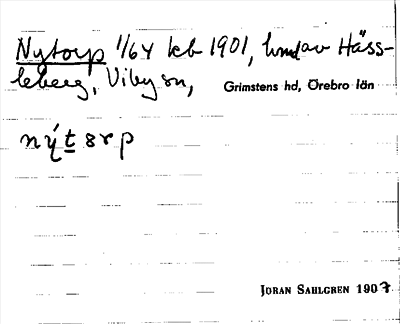 Nytorp 1/64 kb 1901, Häss-
leberg, Viby sn, Grimstens hd, Örebro län
nýtorp
JÖRAN SAHLGREN 1907